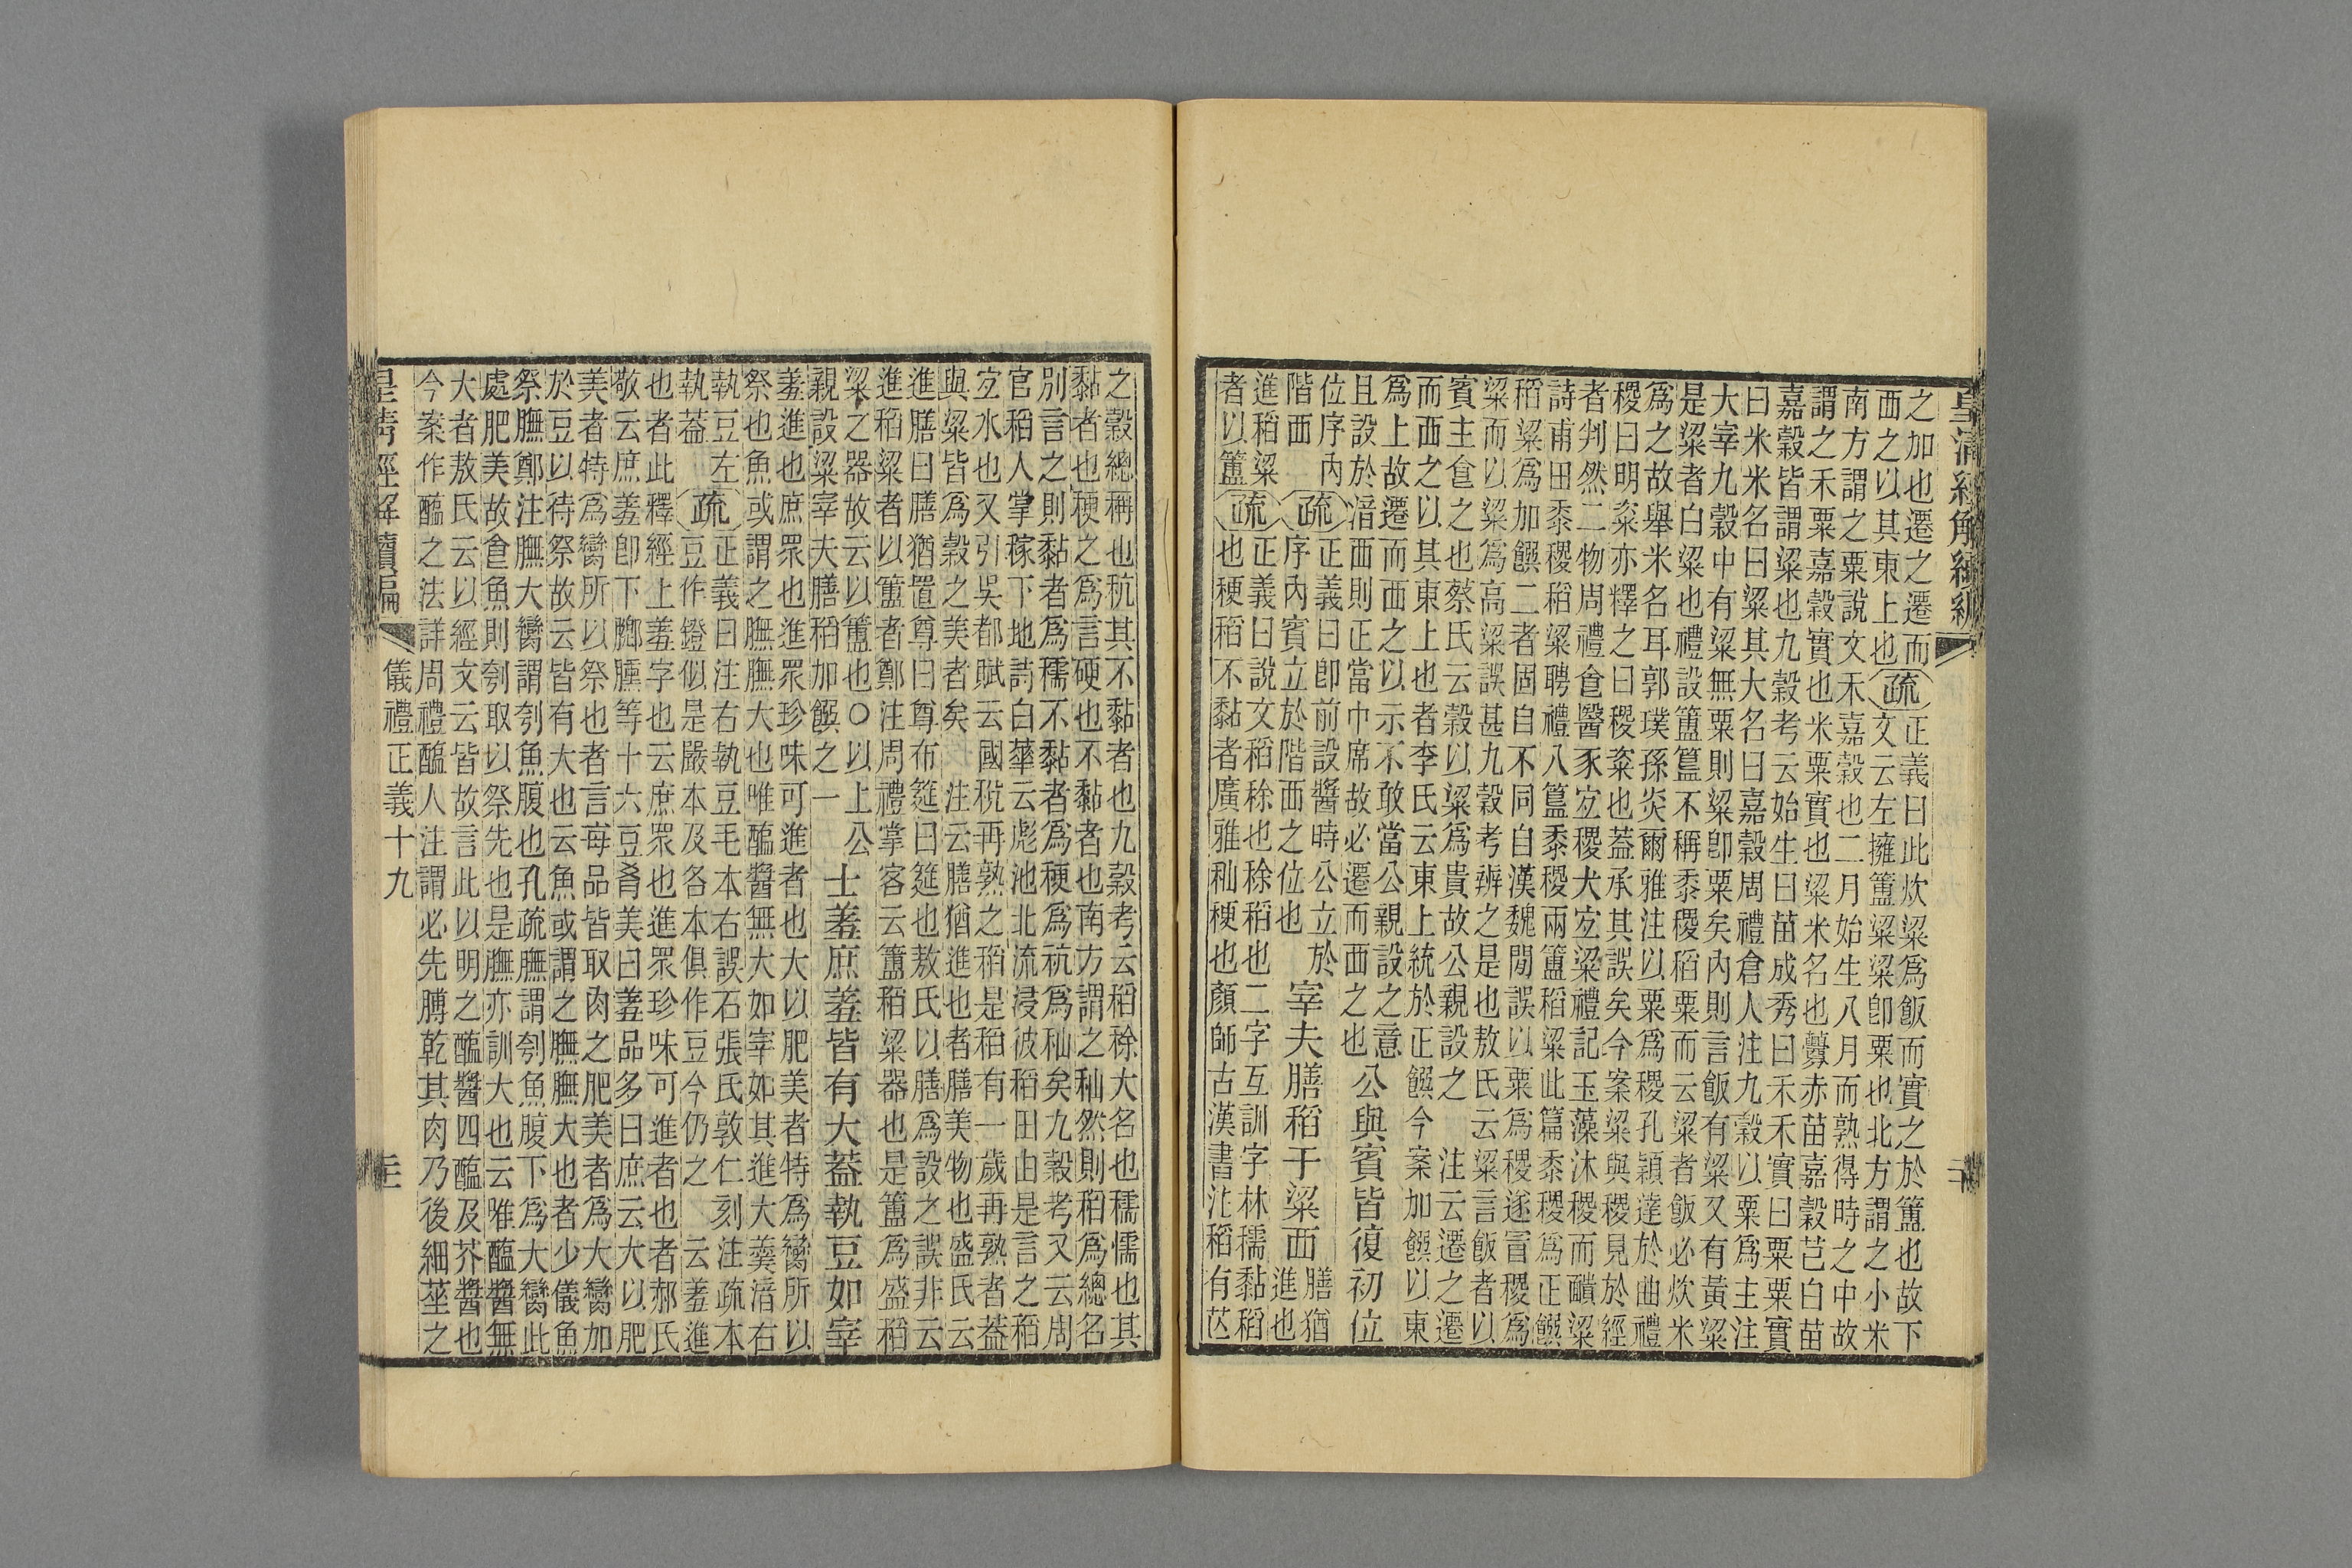 之加也遷之遷而
西之以其東上也
疏
正義曰此炊粱爲飯而實之於簠也故下
文云左擁簠粱粱卽粟也北方謂之小米
南方謂之粟說文禾嘉穀也二月始生八月而熟得時之中故
謂之禾粟嘉穀實也米粟實也粱米名也虋赤苗嘉穀芑白苗
嘉穀皆謂粱也九穀考云始生曰苗成秀曰禾禾實曰粟粟實
曰米米名曰粱其大名曰嘉穀周禮倉人注九穀以粟爲主注
大宰九穀中有粱無粟則粱卽粟矣內則言飯有粱又有黃粱
是粱者白粱也禮設簠簋不稱黍稷稻粟而云粱者飯必炊米
爲之故舉米名耳郭璞孫炎爾雅注以粟爲稷孔穎達於曲禮
稷曰明粢亦釋之曰稷粢也蓋承其誤矣今案粱與稷見於經
者判然二物周禮食醫豕宐稷犬宐粱禮記玉藻沐稷而靧粱
詩甫田黍稷稻粱聘禮八簋黍稷兩簠稻粱此篇黍稷爲正饌
稻粱爲加饌二者固自不同自漢魏閒誤以粟爲稷遂冒稷爲
粱而以粱爲高粱誤甚九穀考辨之是也敖氏云粱言飯者以
賓主食之也蔡氏云穀以粱爲貴故公親設之　注云遷之遷
而西之以其東上也者李氏云東上統於正饌今案加饌以東
爲上故遷而西之以示不敢當公親設之意
且設於湆西則正當中席故必遷而西之也
公與賓皆復初位
位序內
階西
疏
正義曰卽前設醬時公立於
序內賓立於階西之位也
宰夫膳稻于粱西
膳猶
進也
進稻粱
者以簠
疏
正義曰說文稻稌也稌稻也二字互訓字林穤黏稻
也稉稻不黏者廣雅秈稉也顏師古漢書注稻有芒
之穀總稱也秔其不黏者也九穀考云稻稌大名也穤懦也其
黏者也稉之爲言硬也不黏者也南方謂之秈然則稻爲總名
別言之則黏者爲穤不黏者爲稉爲秔爲秈矣九穀考又云周
官稻人掌稼下地詩白華云滮池北流浸彼稻田由是言之稻
宐水也又引吳都賦云國稅再熟之稻是稻有一歲再熟者葢
與粱皆爲穀之美者矣　注云膳猶進也者膳美物也盛氏云
進膳曰膳猶置尊曰尊布筵曰筵也敖氏以膳爲設之誤非云
進稻粱者以簠者鄭注周禮掌客云簠稻粱器也是簠爲盛稻
粱之器故云以簠也○以上公
親設粱宰夫膳稻加饌之一
士羞庶羞皆有大葢執豆如宰
羞進也庶眾也進眾珍味可進者也大以肥美者特爲臠所以
祭也魚或謂之膴膴大也唯醢醬無大如宰如其進大羹湆右
執豆左
執葢
疏
正義曰注右執豆毛本右誤石張氏敦仁刻注疏本
豆作鐙似是嚴本及各本俱作豆今仍之　云羞進
也者此釋經上羞字也云庶眾也進眾珍味可進者也者郝氏
敬云庶羞卽下膷臐等十六豆肴美曰羞品多曰庶云大以肥
美者特爲臠所以祭也者言每品皆取肉之肥美者爲大臠加
於豆以待祭故云皆有大也云魚或謂之膴膴大也者少儀魚
祭膴鄭注膴大臠謂刳魚腹也孔疏膴謂刳魚腹下爲大臠此
處肥美故食魚則刳取以祭先也是膴亦訓大也云唯醢醬無
大者敖氏云以經文云皆故言此以明之醢醬四醢及芥醬也
今案作醢之法詳周禮醢人注謂必先膊乾其肉乃後細莝之
儀禮正義十九